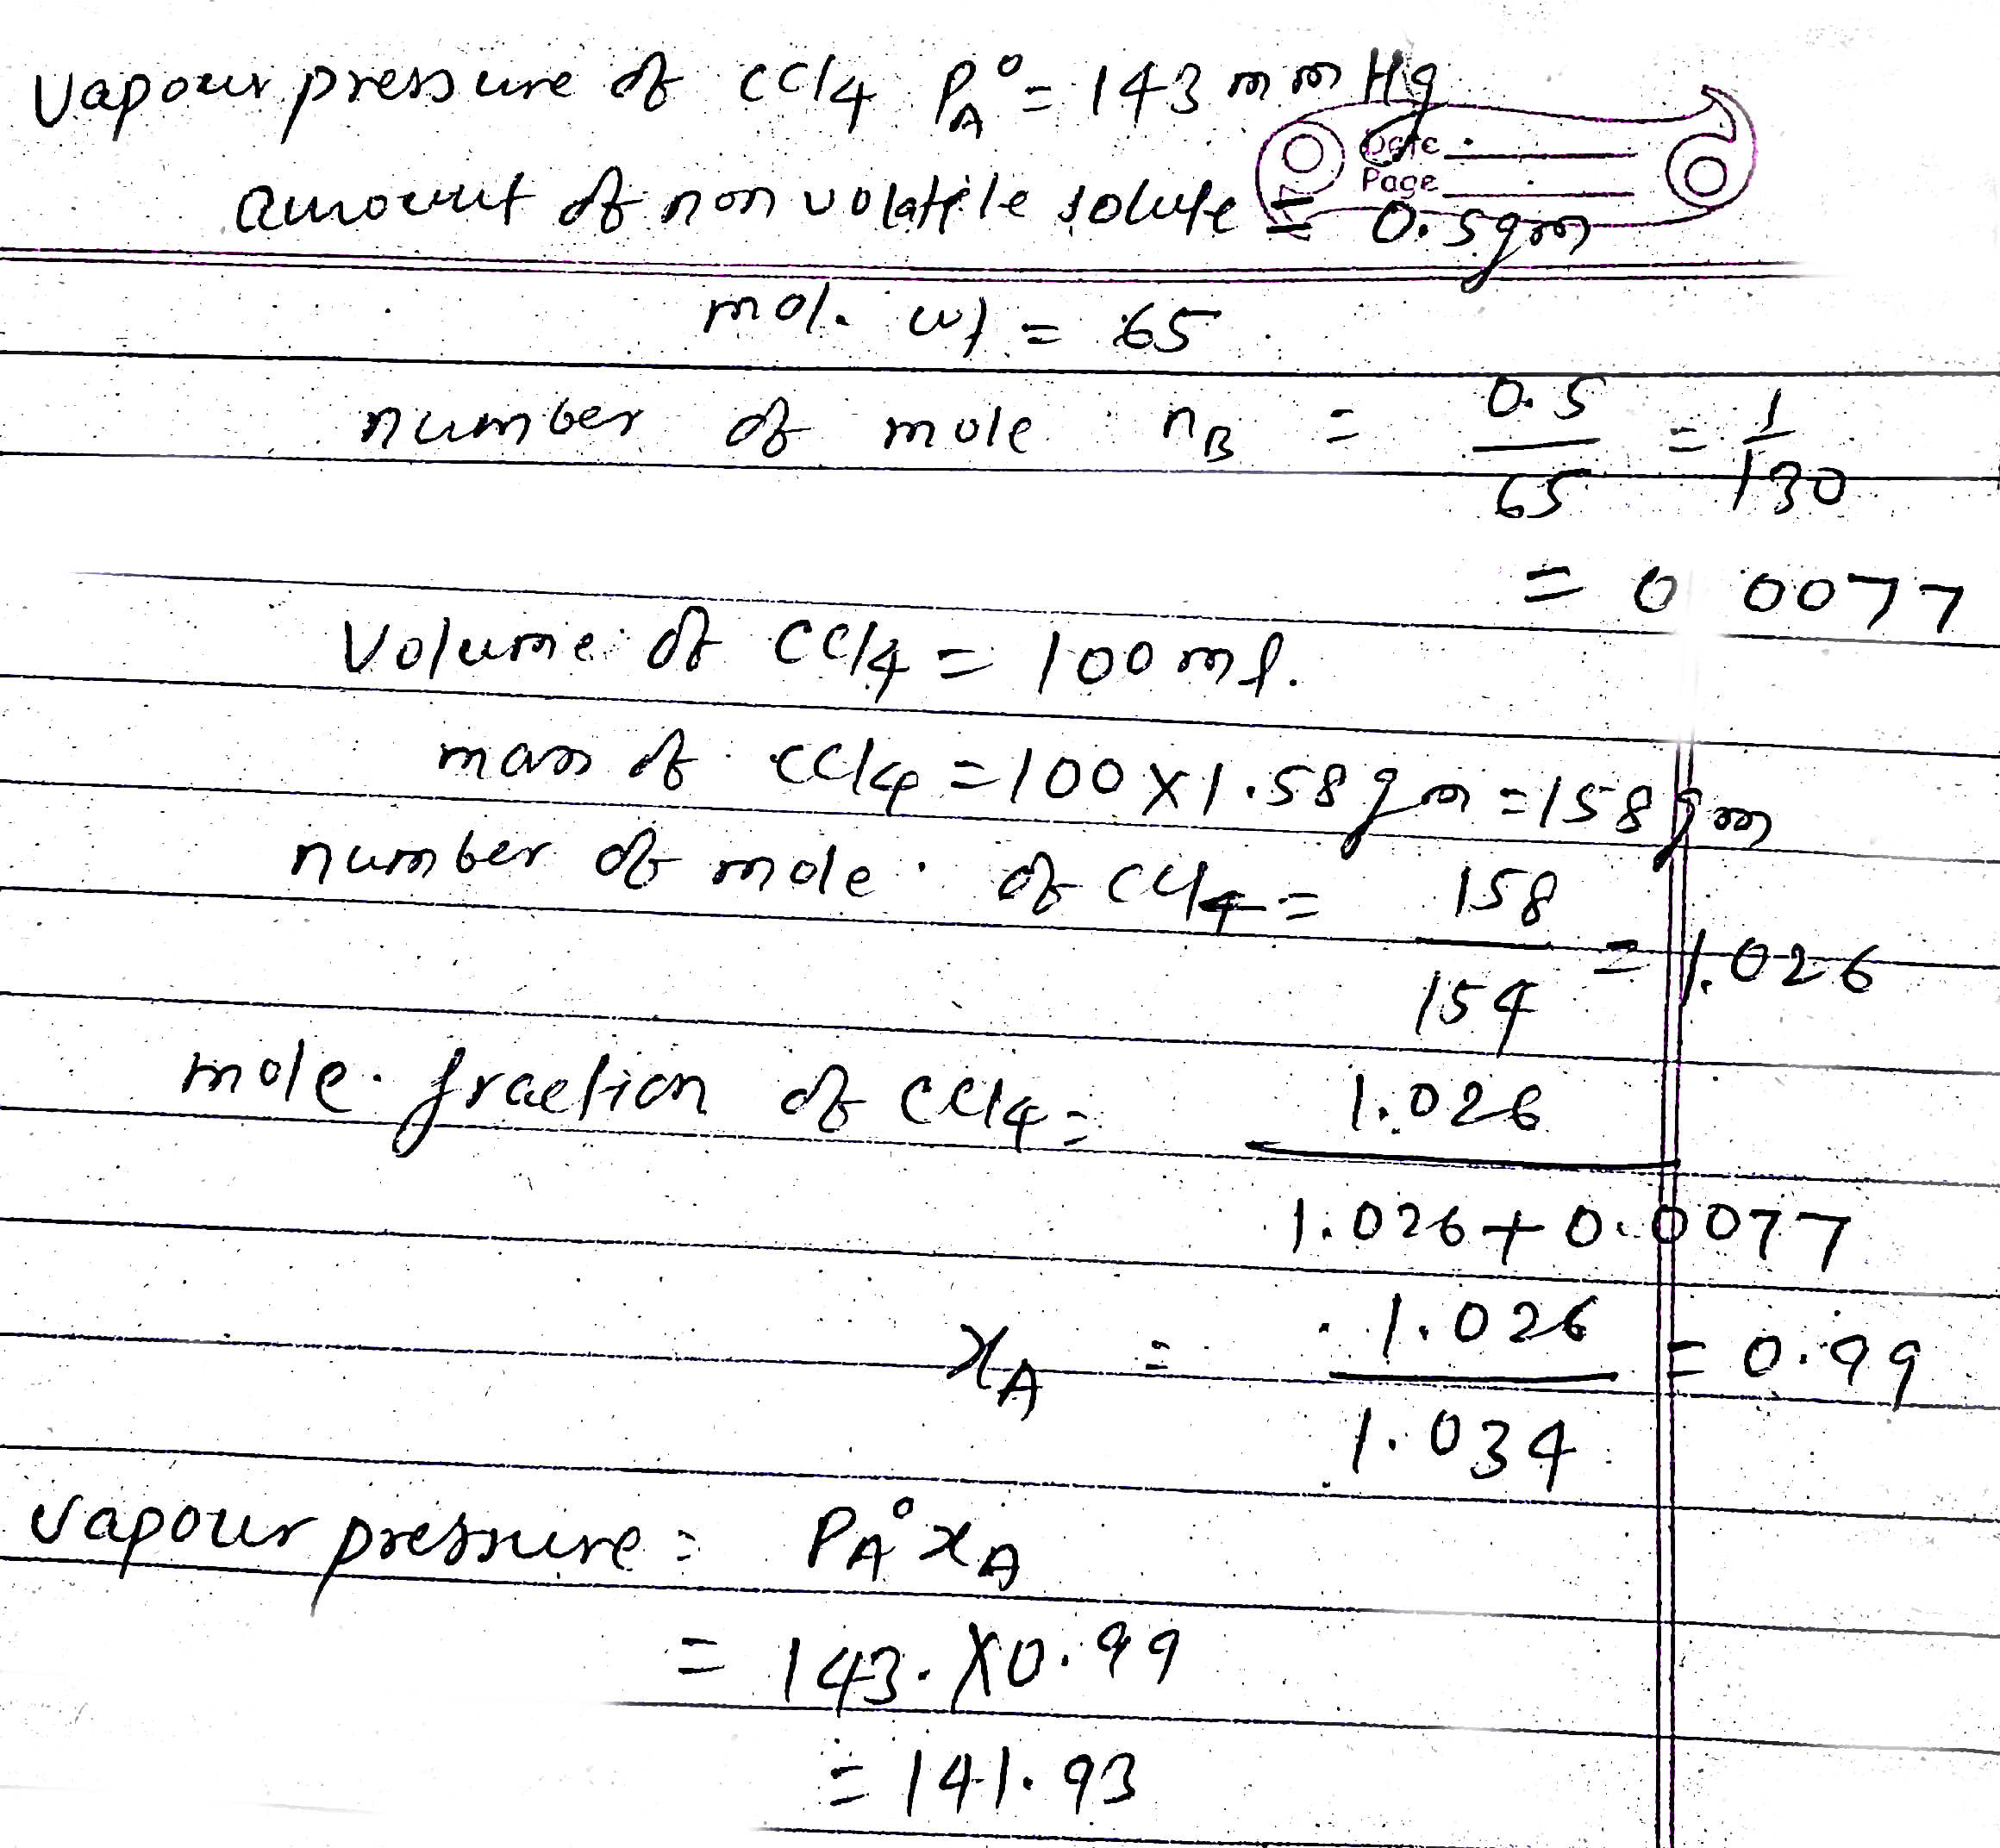 Vapour pressure of CCl4 P_A° = 143 mm Hg
Date
Page
amount of non volatile solute = 0.5 gm
mol. wt = 65
number of mole n_B = 0.5/65 = 1/130
= 0 0077
Volume of CCl4 = 100 ml.
mass of CCl4 = 100 X 1.58 gm = 158 gm
number of mole of CCl4 = 158/154 = 1.026
mole fraction of CCl4 = 1.026/1.026 + 0.0077
x_A = 1.026/1.034 = 0.99
vapour pressure = P_A° x_A
= 143. X 0.99
= 141.93